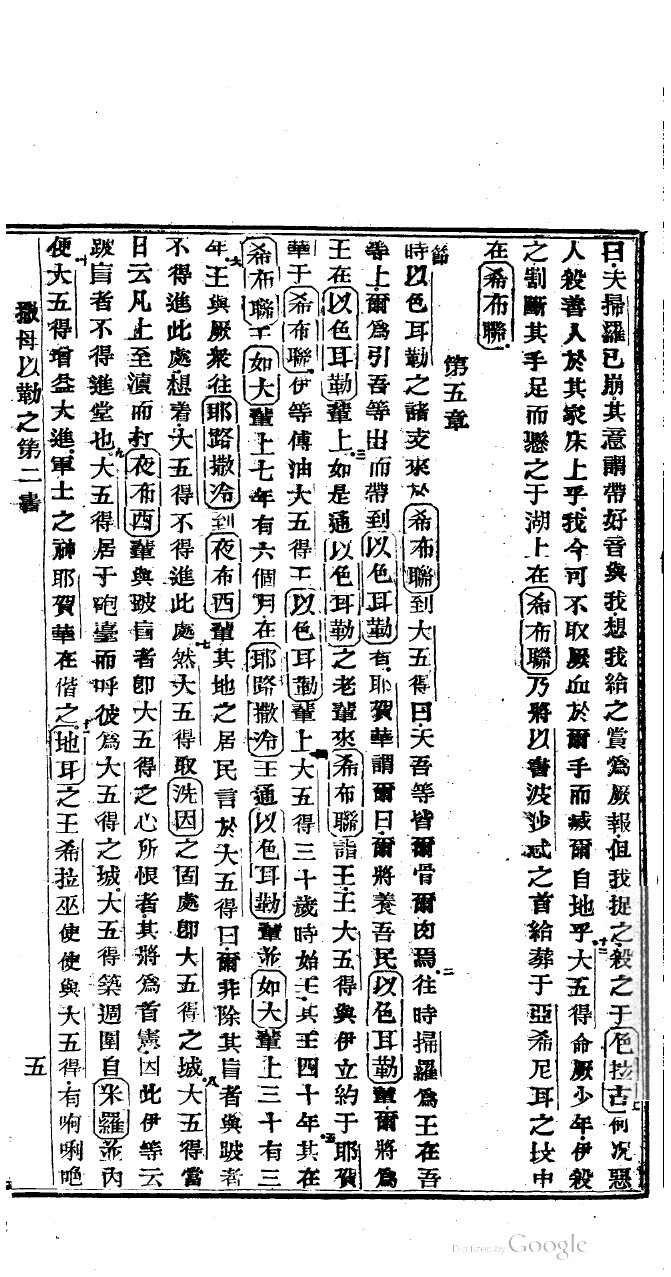 曰夫掃羅已崩其意謂帶好音與我想我給之賞為厥報但我捉之殺之于色拉古何况惡
人殺善人於其家床上乎我今可不取厥血於爾手而滅爾自地乎十二大五得命厥少年伊殺
之割斷其手足而懸之于湖上在希布聯乃將以書波沙忒之首給葬于亞希尼耳之坟中
在希布聯
第五章
節時以色耳勒之諸支來於希布聯到大五得曰夫吾等皆爾骨爾肉焉二往時掃羅為王在吾
等上爾為引吾等出而帶到以色耳勒有耶賀華謂爾曰爾將養吾民以色耳勒輩爾將為
王在以色耳勒輩上三如是通以色耳勒之老輩來希布聯詣王王大五得與伊立約于耶賀
華于希布聯伊等傅油大五得王以色耳勒輩上四大五得三十歲時始王其王四十年五其在
希布聯王如大輩上七年有六個月在耶路撒冷王通以色耳勒輩並如大輩上三十有三
年六王與厥衆往耶路撒冷到夜布西輩其地之居民言於大五得曰爾非除其盲者與跛者
不得進此處想着大五得不得進此處七然大五得取洗因之固處即大五得之城八大五得當
日云凡上至瀆而打夜布西輩與跛盲者即大五得之心所恨者其將為首憲因此伊等云
跛盲者不得進堂也九大五得居于砲臺而呼彼為大五得之城大五得築週圍自米羅並內
十便大五得增益大進軍士之神耶賀華在偕之十一地耳之王希拉巫使使與大五得有㖃唎
撒母以勒之第二書
五
Digitized by Google